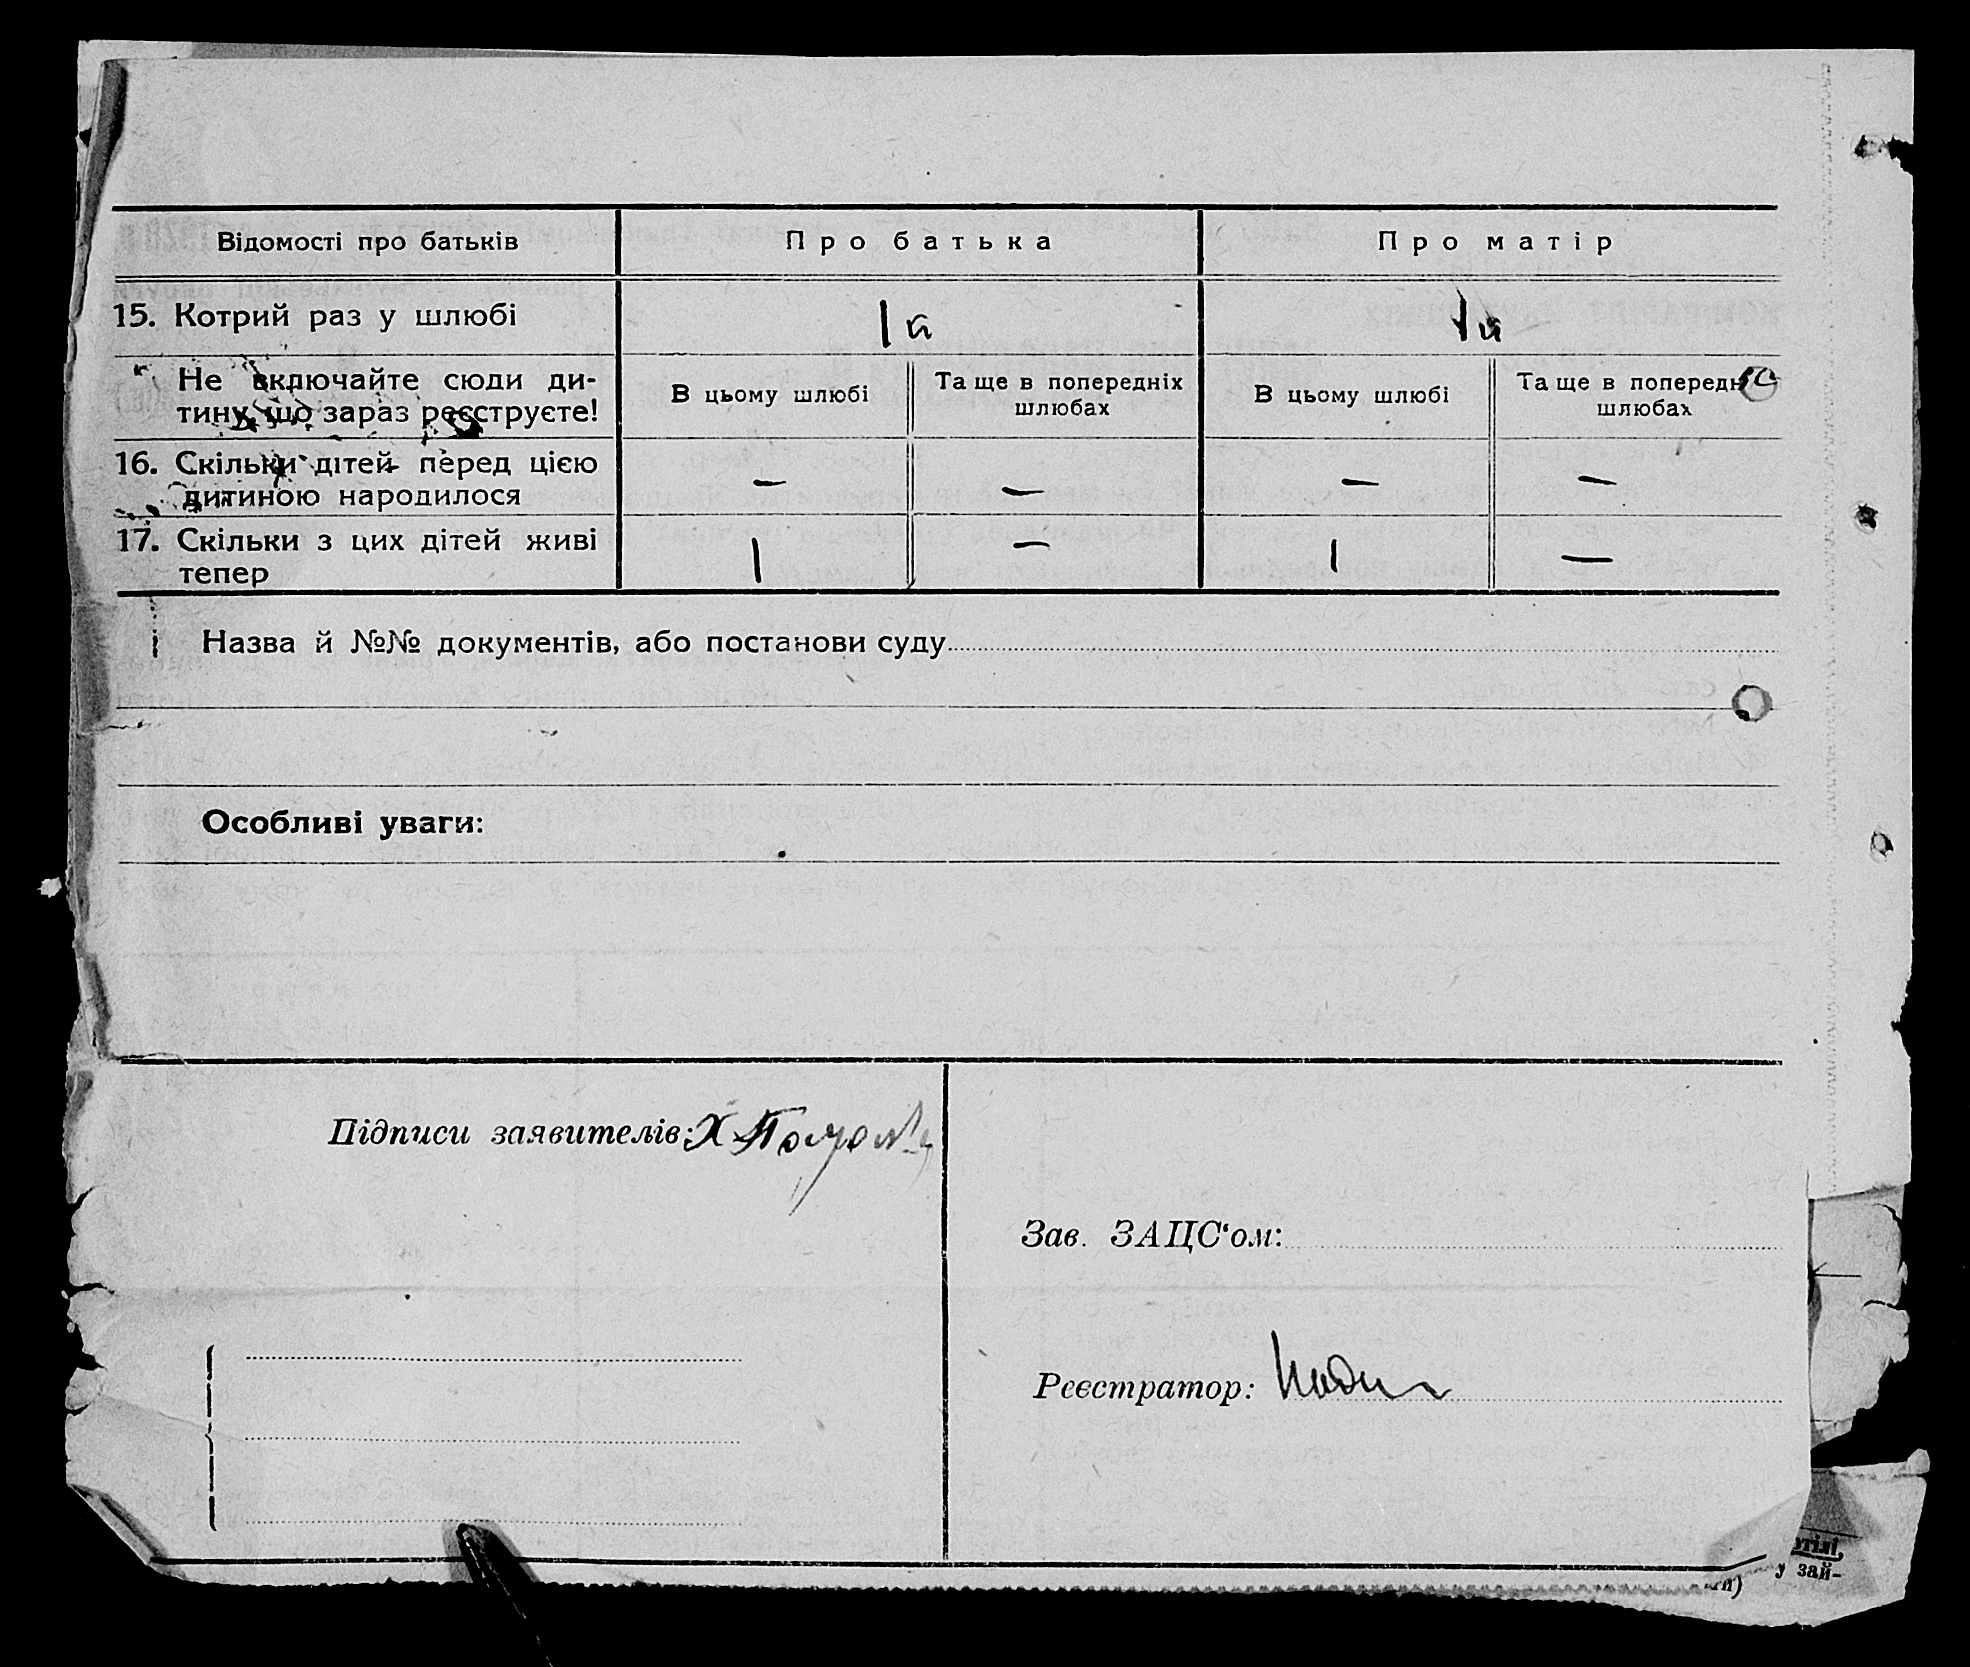 Відомості про батьків
Про батька
Про матір
15. Котрий раз у шлюбі
1й
1й
Не включайте сюди ди-
тину, що зараз реєструєте!
В цьому шлюбі
Та ще в попередніх
шлюбах
В цьому шлюбі
Та ще в попередн
шлюбах
16. Скільки дітей перед цією
дитиною народилося
—
—
—
—
17. Скільки з цих дітей живі
тепер
1
—
1
—
Назва й №№ документів, або постанови суду
Особливі уваги:
Підписи заявителів: Х
Зав. ЗАЦС‘ом:
Реєстратор:
у зай-